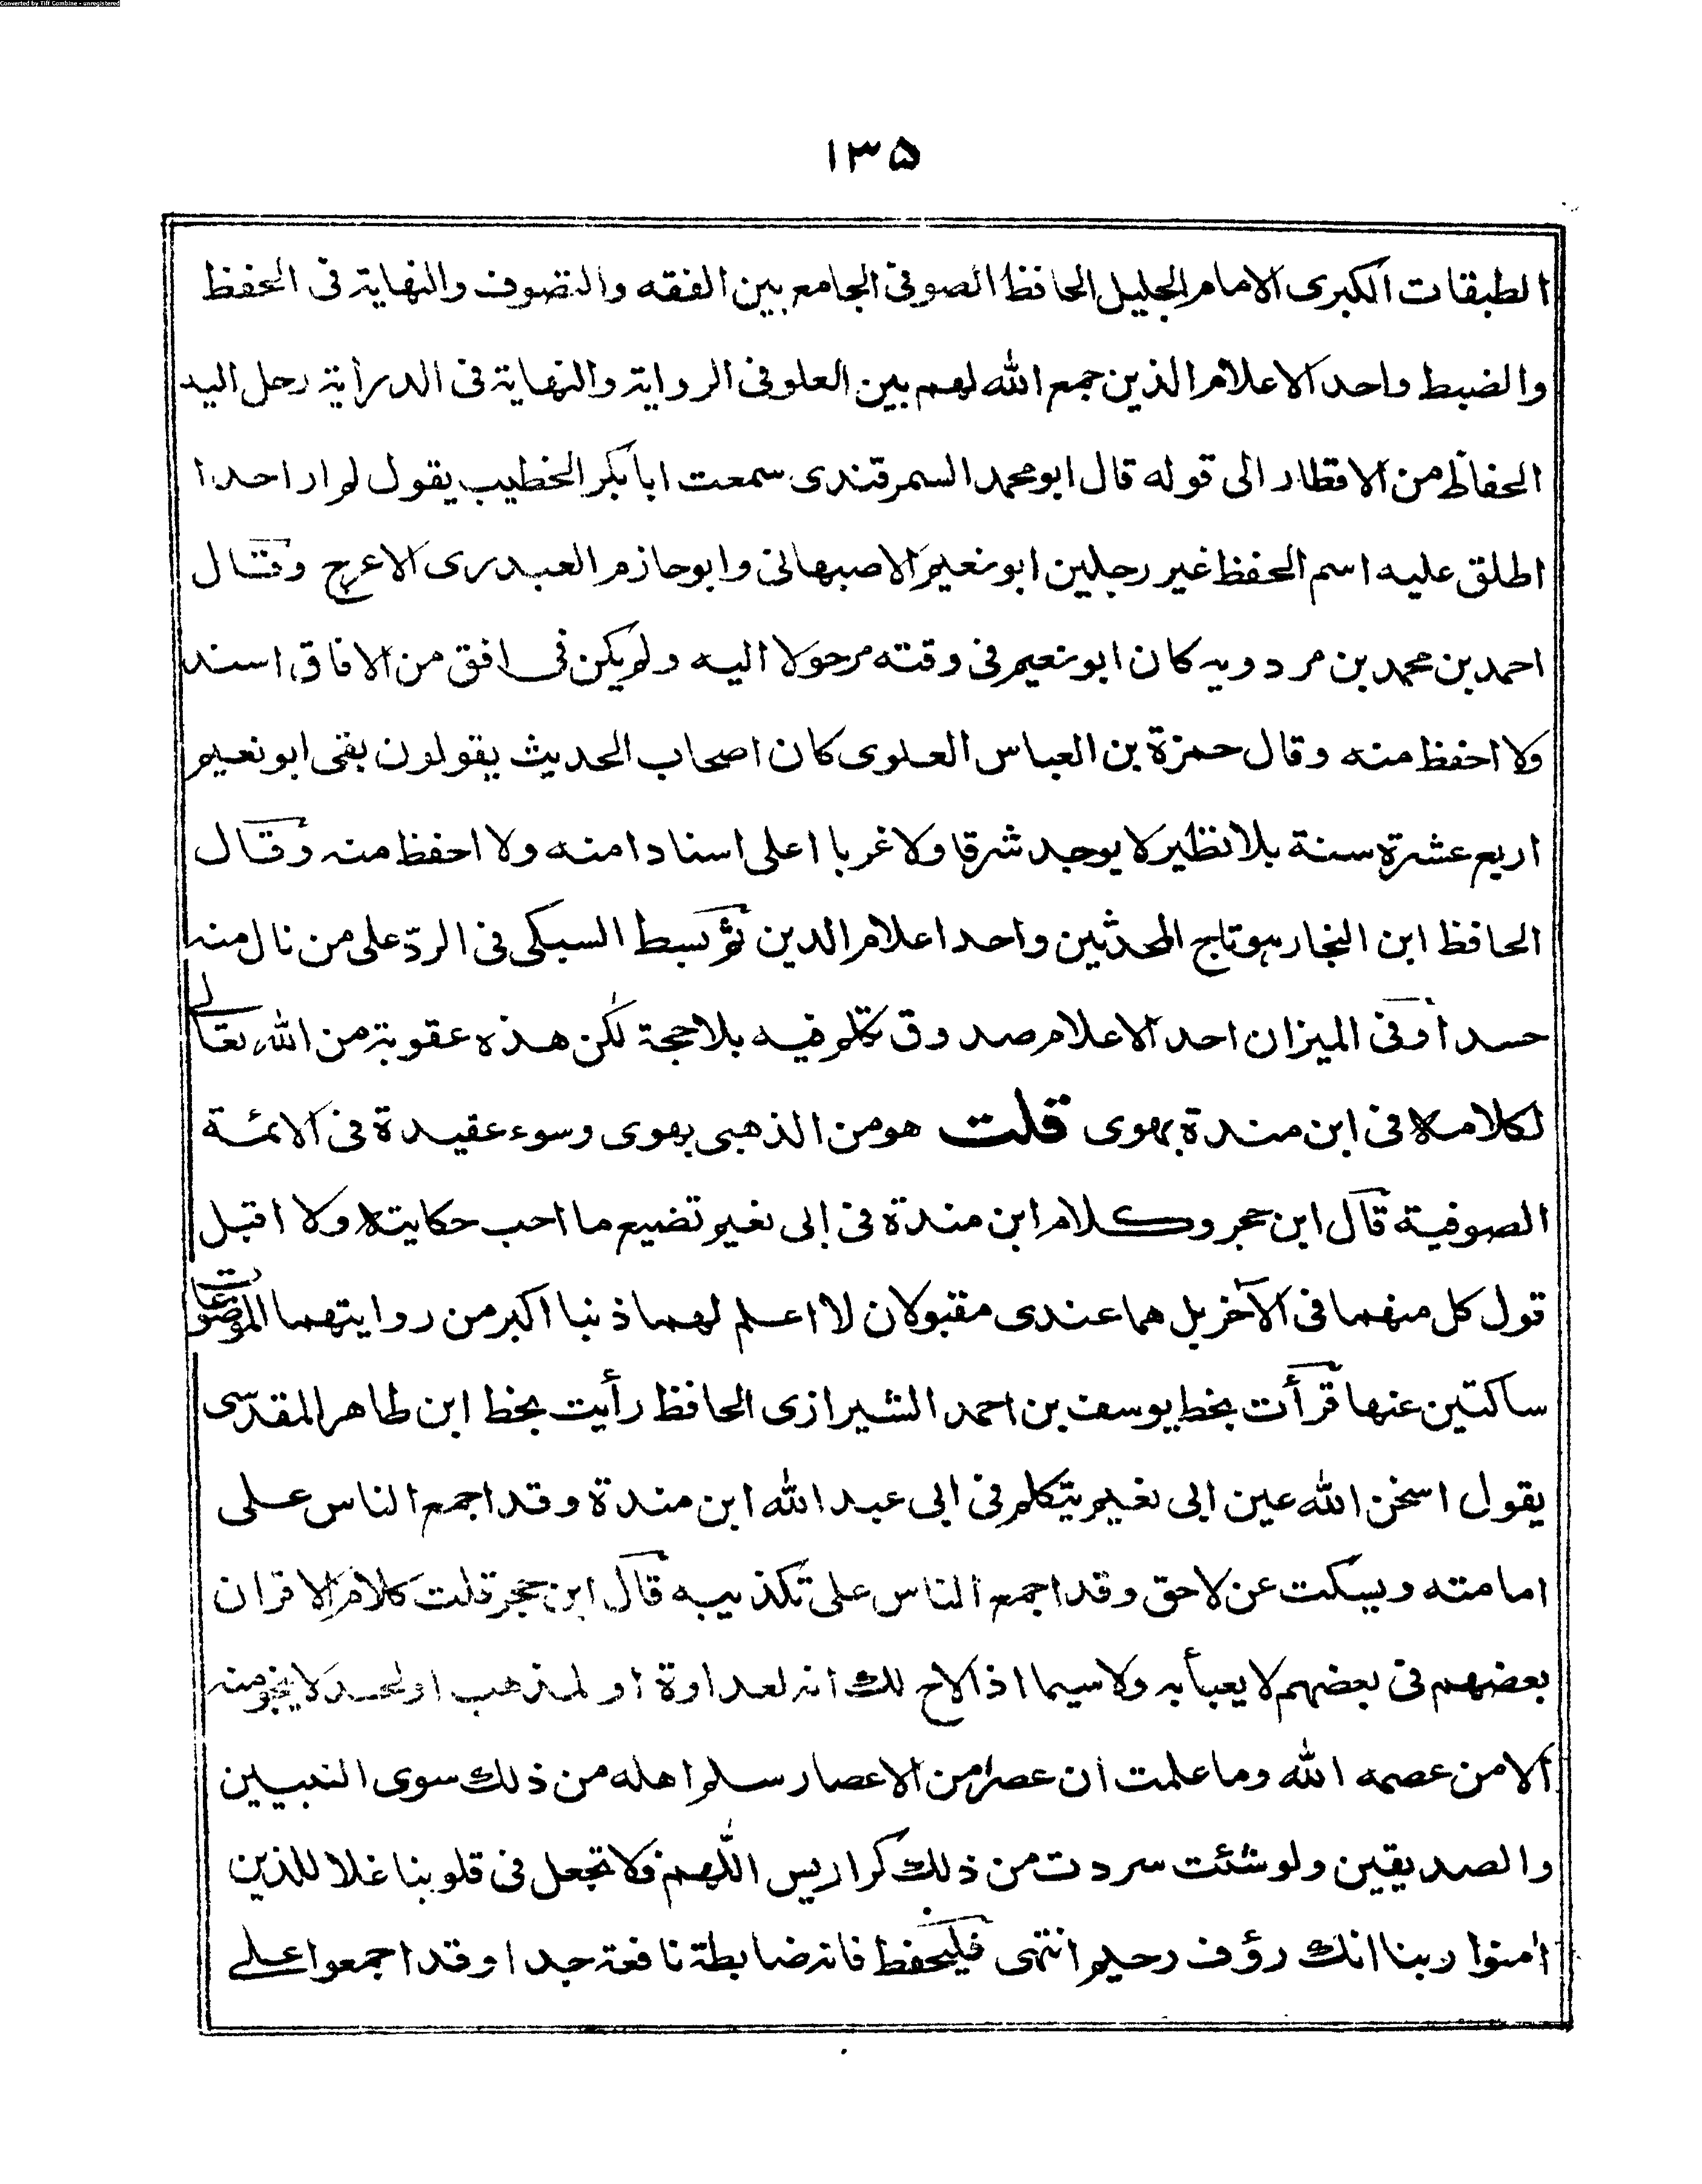 Converted by Tiff Combine - unregistered
١٣۵
الطبقات الكبرى الامام الجليل الحافظ الصوفى الجامع بين الفقه والتصوف والنهاية فى الحفظ
والضبط واحد الاعلام الذين جمع الله لهم بين العلو فى الرواية والنهاية فى الدراية رحل اليه
الحفاظ من الاقطار الى قوله قال ابو محمد السمرقندى سمعت ابا بكر الخطيب يقول لم ار احدا
اطلق عليه اسم الحفظ غير رجلين ابو نعيم الاصبهانى وابو حازم العبدرى الاعرج وقال
احمد بن محمد بن مردويه كان ابو نعيم فى وقته مرحولا اليه ولم يكن فى افق من الافاق اسند
ولا احفظ منه وقال حمزة بن العباس العلوى كان اصحاب الحديث يقولون بقى ابو نعيم
اربع عشرة سنة بلا نظير لا يوجد شرقا ولا غربا اعلى اسنادا منه ولا احفظ منه وقال
الحافظ ابن النجار هو تاج المحدثين واحد اعلام الدين ثم بسط السبكى فى الردّ على من نال منه
حسدا وفى الميزان احد الاعلام صدوق تكلم فيه بلا حجة لكن هذه عقوبة من الله تعالى
لكلامه فى ابن مندة بهوى قلت هو من الذهبى بهوى وسوء عقيدة فى الائمة
الصوفية قال ابن حجر وكلام ابن مندة فى ابى نعيم تضيع ما احب حكايته ولا اقبل
قول كل منهما فى الآخر بل هما عندى مقبولان لا اعلم لهما ذنبا اكبر من روايتهما الموضوعات
ساكتين عنها قرأت بخط يوسف بن احمد الشيرازى الحافظ رأيت بخط ابن طاهر المقدسى
يقول اسخن الله عين ابى نعيم يتكلم فى ابى عبد الله ابن مندة وقد اجمع الناس على
امامته ويسكت عن لاحق وقد اجمع الناس على تكذيبه قال ابن حجر قلت كلام الاقران
بعضهم فى بعضهم لا يعبأ به ولا سيما اذا لاح لك انه لعداوة او لمذهب او لحسد لا ينجو منه
الا من عصمه الله وما علمت ان عصرا من الاعصار سلم اهله من ذلك سوى النبيين
والصديقين ولو شئت سردت من ذلك كراريس اللّهم فلا تجعل فى قلوبنا غلا للذين
امنوا ربنا انك رؤف رحيم انتهى فليحفظ فانه ضابطة نافعة جدا وقد اجمعوا على